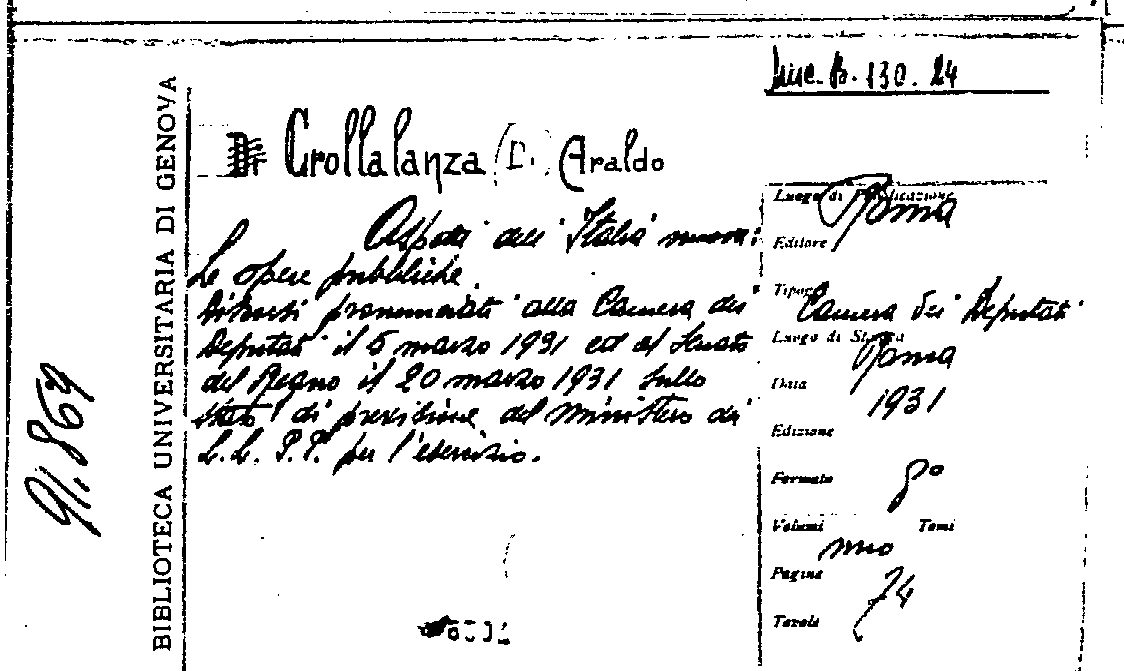 Misc. B. 130. 24
BIBLIOTECA UNIVERSITARIA DI GENOVA
91.869
Crollalanza (D.) Araldo
Aspetti dell'Italia nuova:
Le opere pubbliche.
Discorsi pronunciati alla Camera dei
Deputati il 5 marzo 1931 ed al Senato
del Regno il 20 marzo 1931 sullo
stato di previsione del ministero dei
L.L. P.P. per l'esercizio.
Luogo di pubblicazione Roma
Editore
Tipogr. Camera dei Deputati
Luogo di Stampa Roma
Data 1931
Edizione
Formato 8º
Volumi Tomi
uno
Pagine 74
Tavole